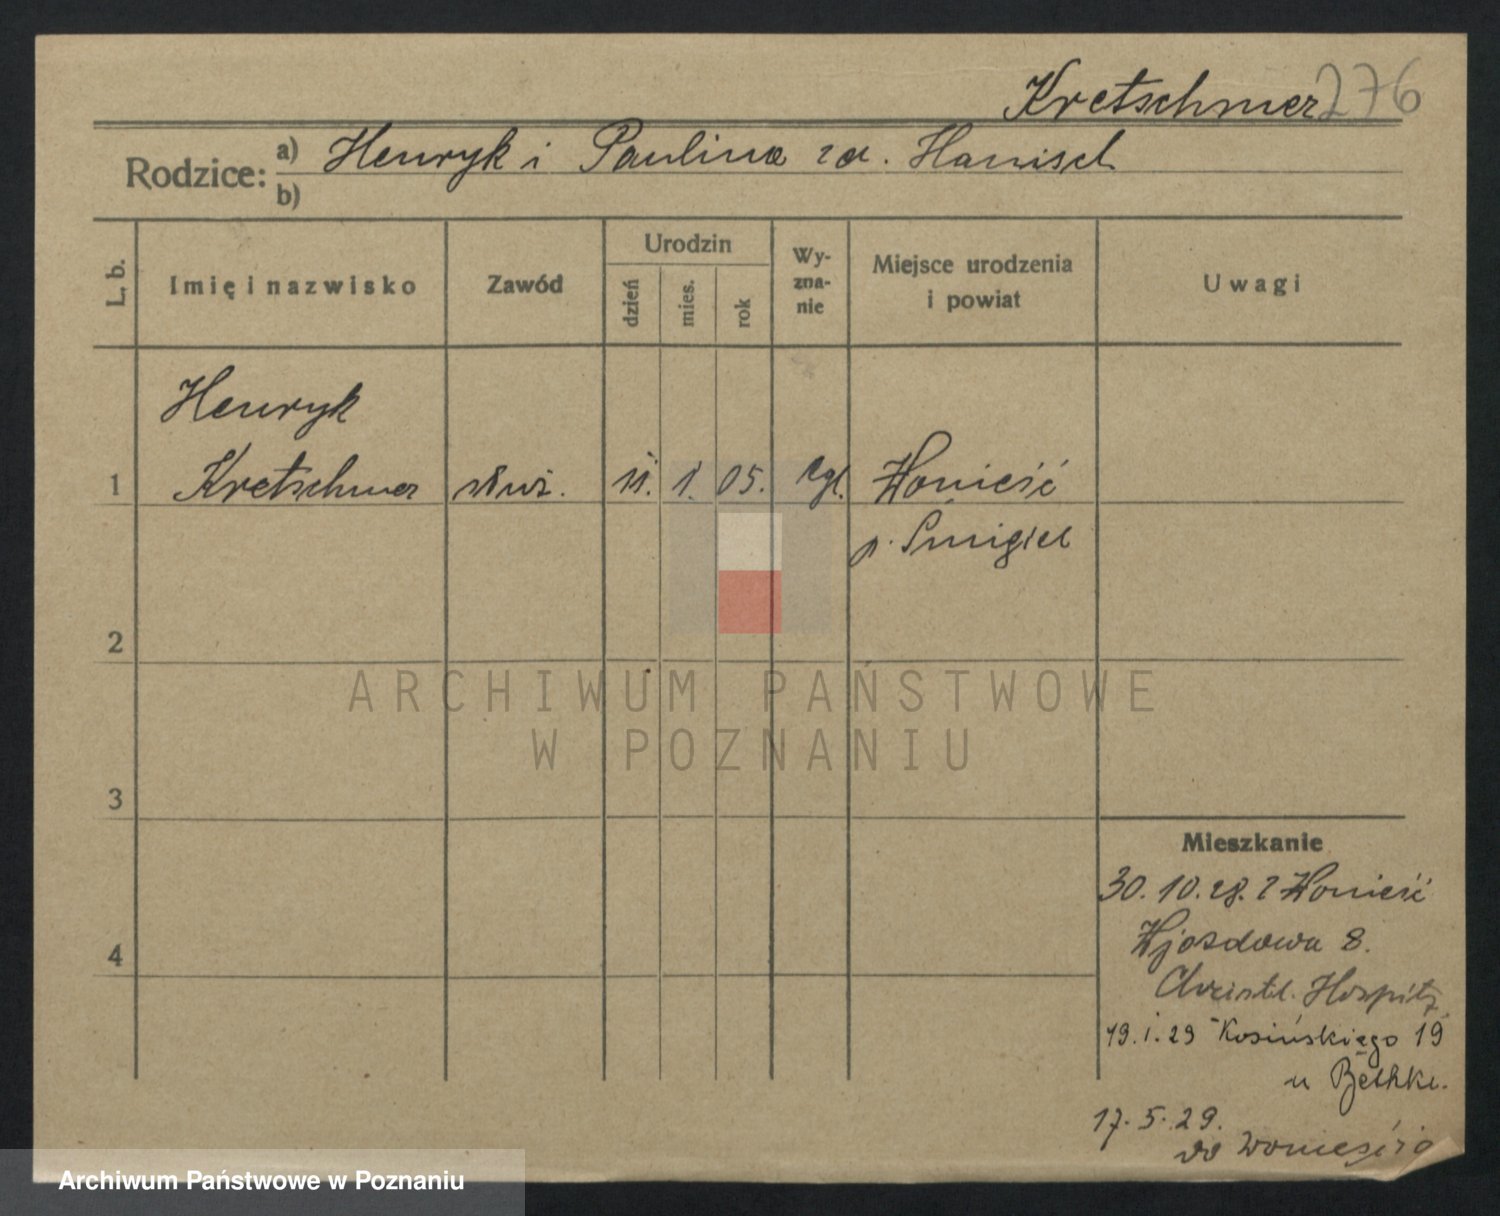 Kretschmer 276
Rodzice: a) Henryk i Paulina za. Hanisch
b)
L. b. Imię i nazwisko Zawód Urodzin dzień mies. rok Wy-zna-nie Miejsce urodzenia i powiat Uwagi
Henryk
1 Kretschmer 11. 1. 05. Wonieść
p. Śmigiel
2
ARCHIWUM PAŃSTWOWE
W POZNANIU
3
Mieszkanie
30. 10. 28. z Wonieść
Wjazdowa 8.
4
Christl. Hospitz
19. 1. 29 Kosińskiego 19
u Bethke.
17. 5. 29.
do Wonieścia
Archiwum Państwowe w Poznaniu